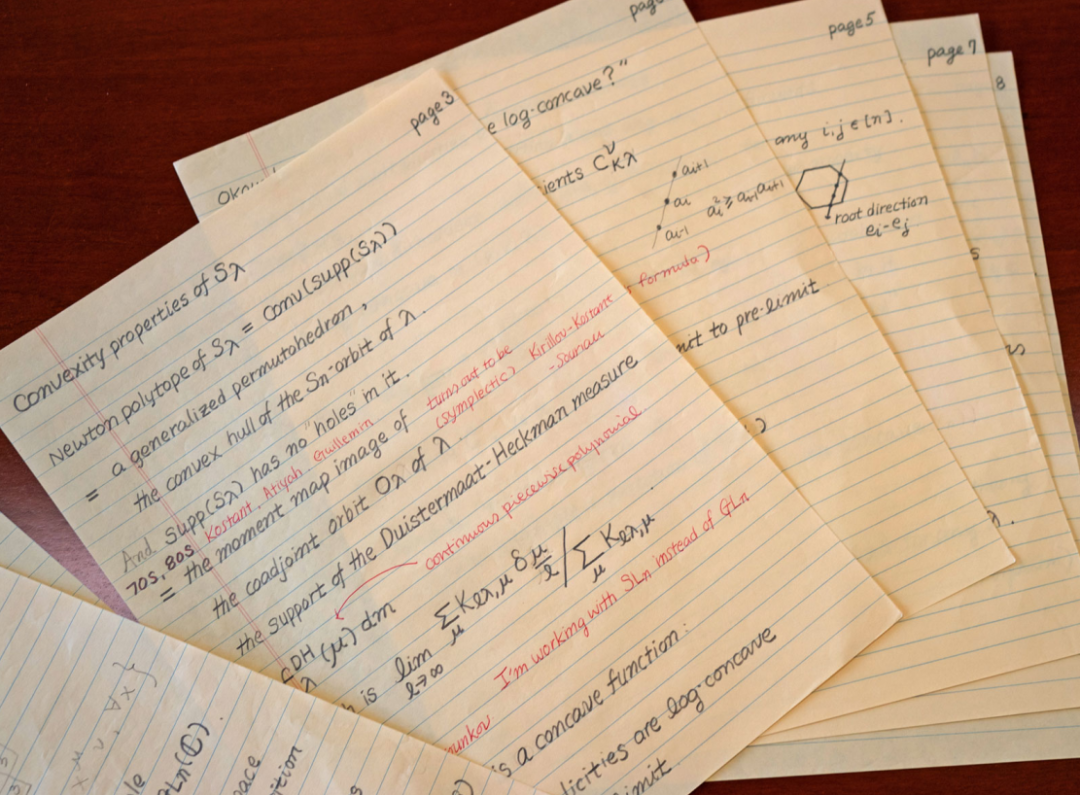 page 3
Convexity properties of Sλ
Newton polytope of Sλ = Conv(supp(Sλ))
= a generalized permutohedron,
the convex hull of the Sn-orbit of λ.
And supp(Sλ) has no "holes" in it.
70s, 80s Kostant, Atiyah Guillemin
= the moment map image of turns out to be (symplectic) Kirillov-Kostant-Souriau
the coadjoint orbit Oλ of λ.
the support of the Duistermaat-Heckman measure
continuous piecewise polynomial
DH λ (μ) dm
is lim ℓ→∞ Σ μ Kℓλ,μ δ μ/ℓ / Σ μ Kℓλ,μ
I'm working with SLn instead of GLn
is a concave function:
licities are log-concave
limit.
e log-concave?"
ients C ν κλ
ai+1
ai
ai-1
ai² ≥ ai-1 ai+1
formula)
mit to pre-limit
page 5
any i,j ∈ [n].
root direction
ei-ej
page 7
8
Ln(ℂ).